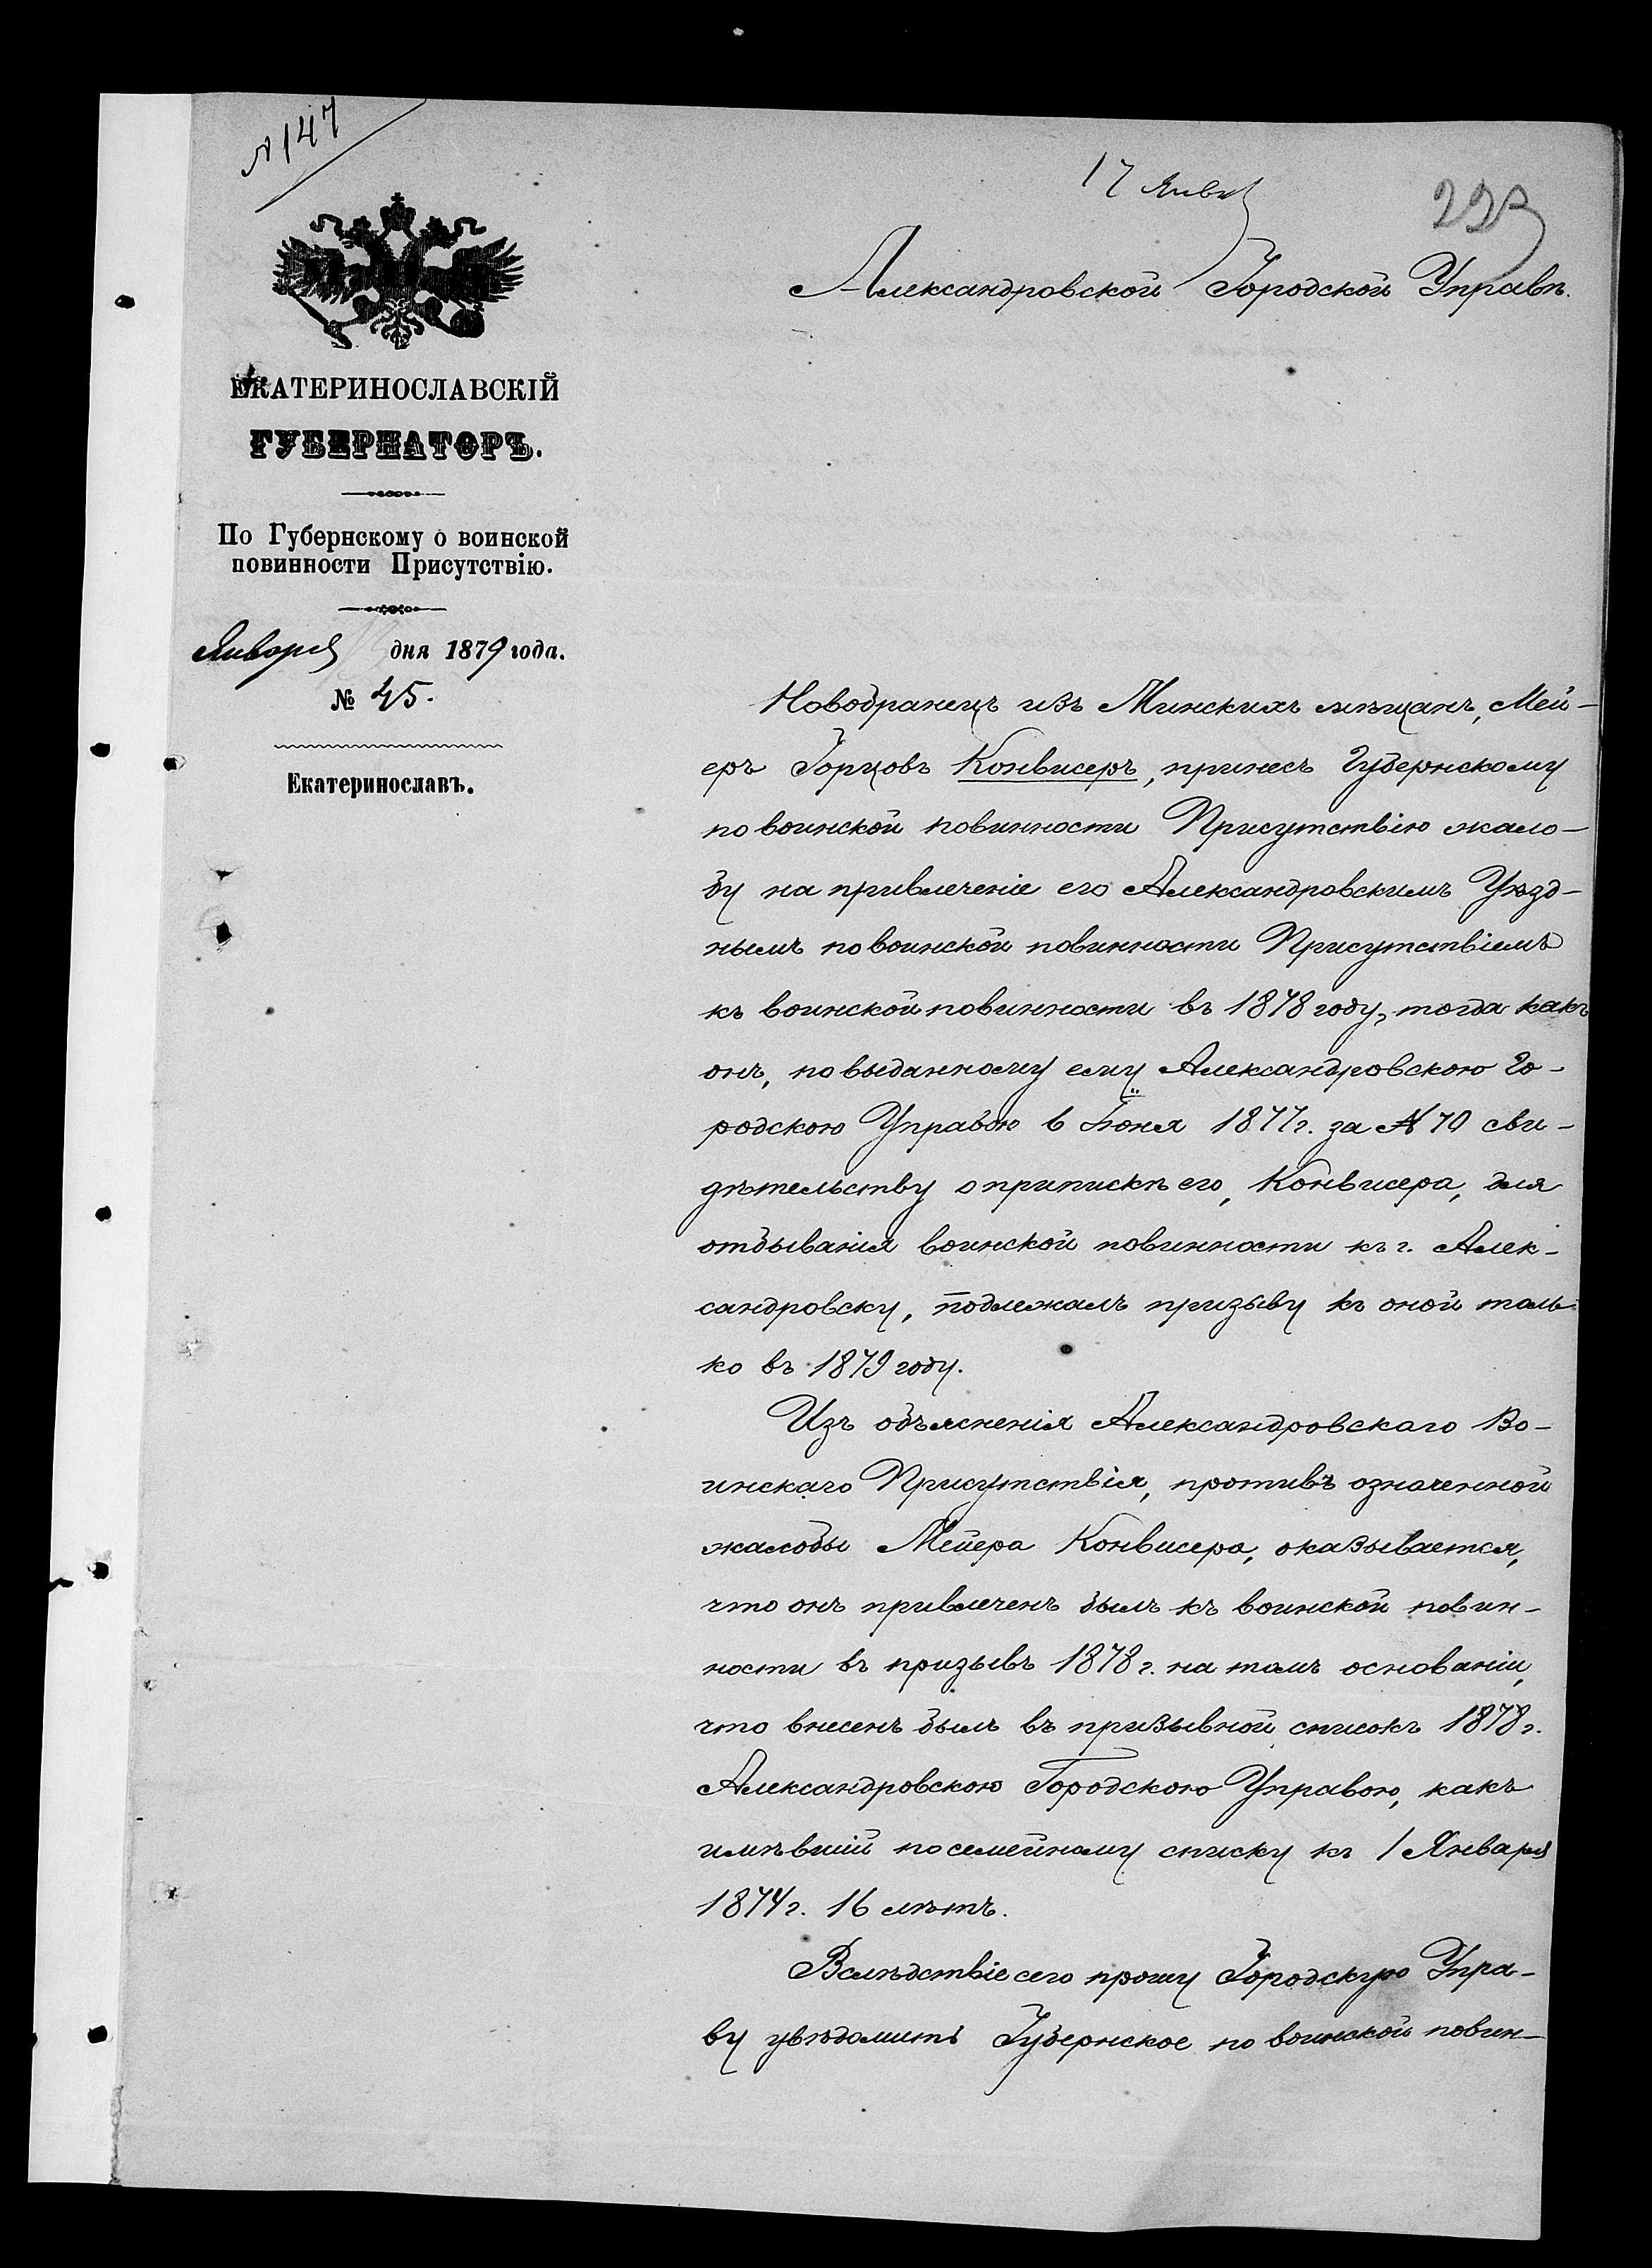 № 147
17 Янв
ЕКАТЕРИНОСЛАВСКІЙ
ГУБЕРНАТОРЪ.
По Губернскому о воинской
повинности Присутствію.
Января дня 1879 года.
№ 45.
Екатеринославъ.
Александровской Городской Управѣ.
Новобранецъ изъ Минскихъ мѣщанъ, Мей-
еръ Горцовъ Конвисеръ, принесъ Губернскому
по воинской повинности Присутствію жало-
бу на привлеченіе его Александровскимъ Уѣзд-
нымъ по воинской повинности Присутствіемъ
къ воинской повинности въ 1878 году, тогда какъ
онъ, по выданному ему Александровскою Го-
родскою Управою 6 Іюня 1877 г. за № 70 сви-
дѣтельству о припискѣ его, Конвисера, для
отбыванія воинской повинности къ г. Алек-
сандровску, подлежалъ призыву къ оной толь-
ко въ 1879 году.
Изъ объясненія Александровскаго Во-
инскаго Присутствія, противъ означенной
жалобы Мейера Конвисера, оказывается,
что онъ привлеченъ былъ къ воинской повин-
ности въ призывъ 1878 г. на томъ основаніи,
что внесенъ былъ въ призывной списокъ 1878 г.
Александровскою Городскою Управою, какъ
имѣвшій по семейному списку къ 1 Января
1874 г. 16 лѣтъ.
Вслѣдствіе сего прошу Городскую Упра-
ву увѣдомить Губернское по воинской повин-